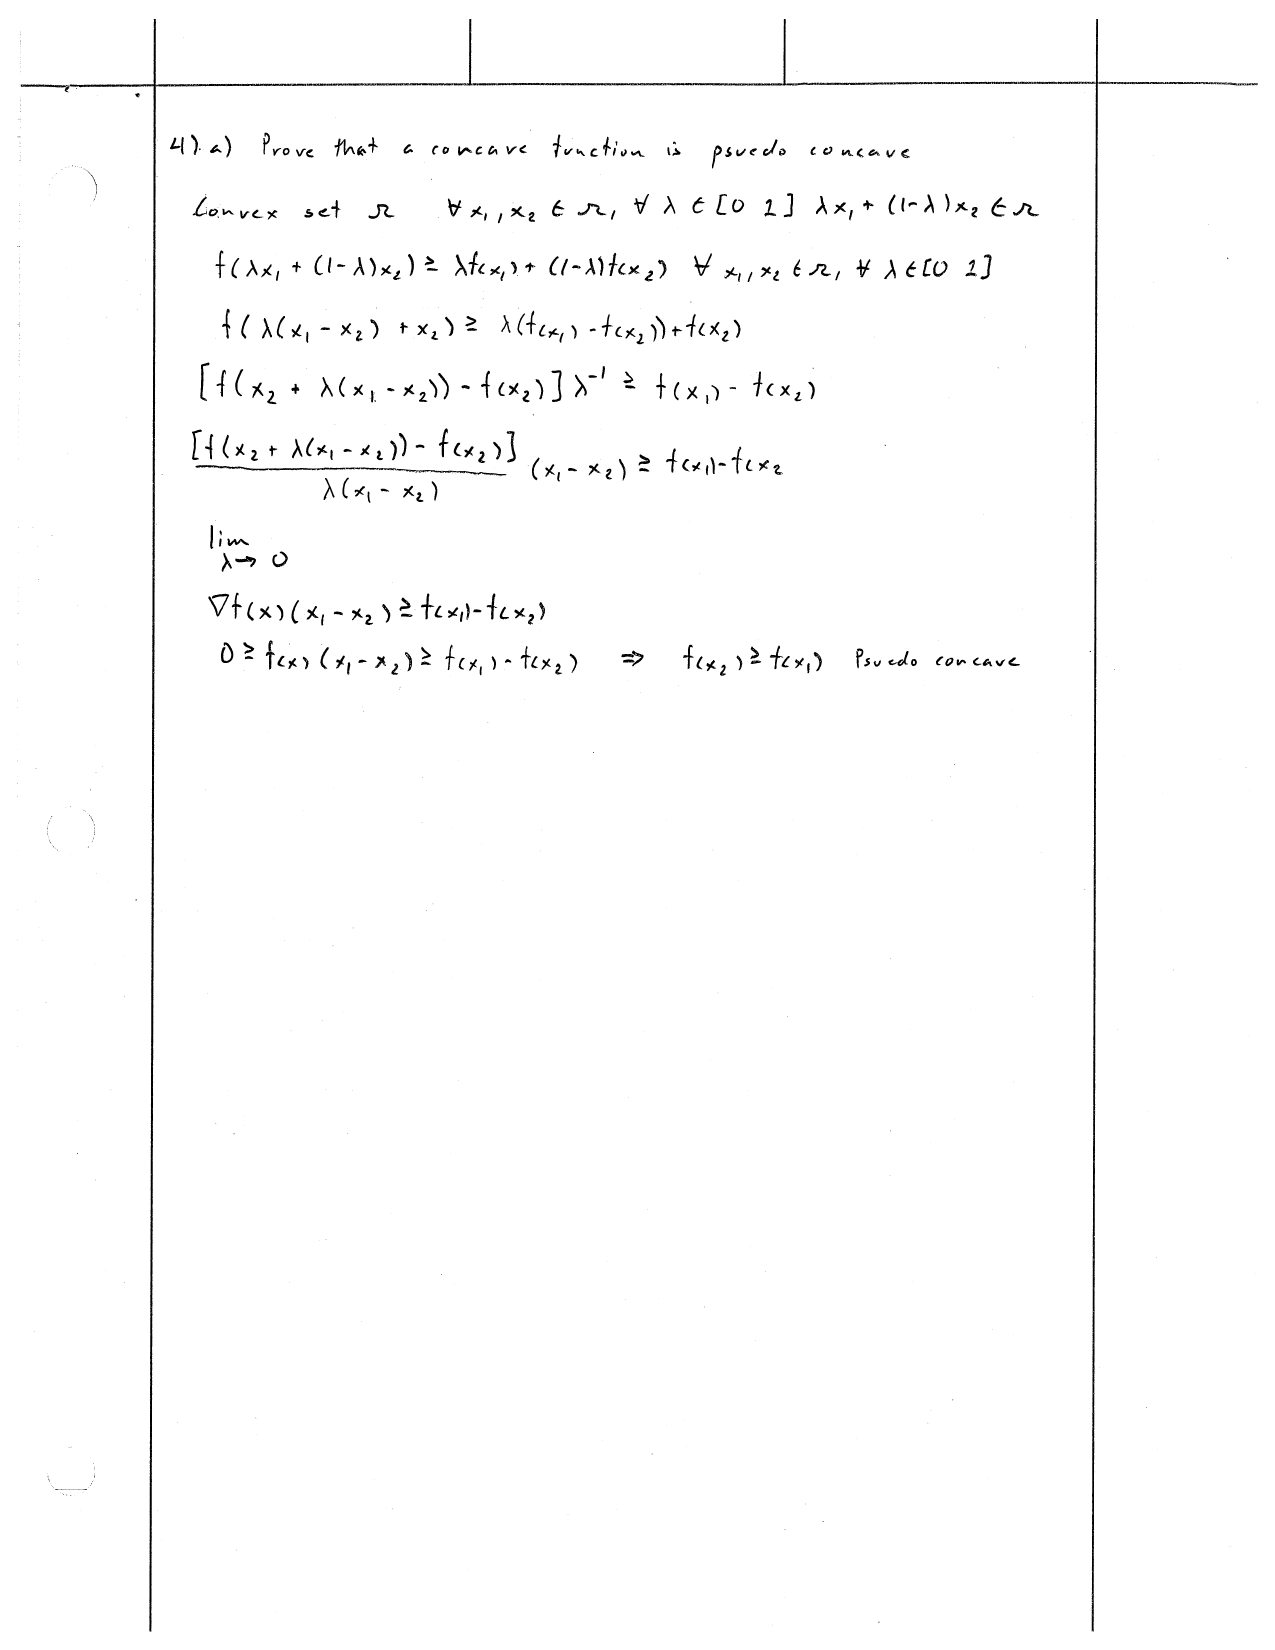 4). a) Prove that a concave function is psuedo concave
Convex set Ω ∀ x₁, x₂ ∈ Ω, ∀ λ ∈ [0 1] λx₁ + (1-λ)x₂ ∈ Ω
f(λx₁ + (1-λ)x₂) ≥ λf(x₁) + (1-λ)f(x₂) ∀ x₁, x₂ ∈ Ω, ∀ λ ∈ [0 1]
f(λ(x₁ - x₂) + x₂) ≥ λ(f(x₁) - f(x₂)) + f(x₂)
[f(x₂ + λ(x₁ - x₂)) - f(x₂)] λ⁻¹ ≥ f(x₁) - f(x₂)
[f(x₂ + λ(x₁ - x₂)) - f(x₂)]
(x₁ - x₂) ≥ f(x₁) - f(x₂
λ(x₁ - x₂)
lim
λ→ 0
∇f(x)(x₁ - x₂) ≥ f(x₁) - f(x₂)
0 ≥ f(x)(x₁ - x₂) ≥ f(x₁) - f(x₂) ⇒ f(x₂) ≥ f(x₁) Psuedo concave